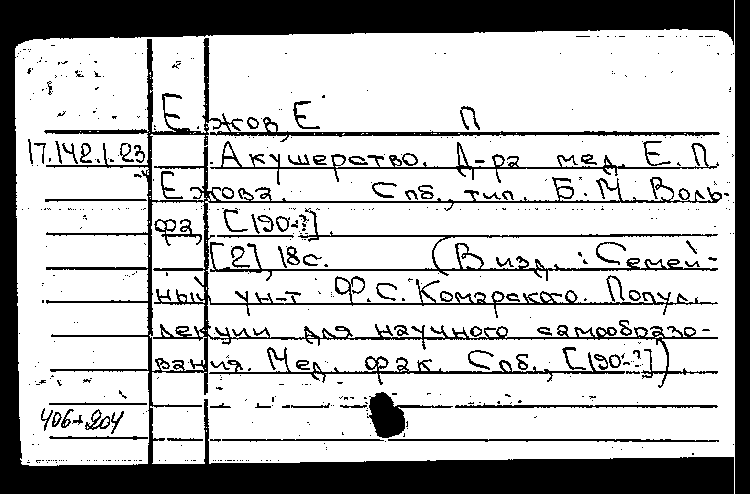 Ежов, Е П
17.142.1.23 Акушерство. Д-ра мед. Е. П.
Ежова. Спб., тип. Б. М. Воль-
фа, [190-?].
[2], 18с. (В изд.: Семей-
ный ун-т Ф. С. Комарского. Попул.
лекции для научного самообразо-
вания. Мед. фак. Спб., [190-?]).
406+204